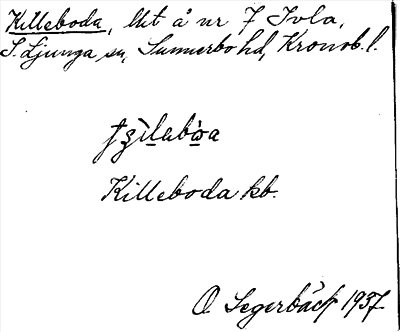 Killeboda, lht å nr 7 Ivla,
S. Ljunga sn, Sunnerbo hd, Kronob. l.
Killeboda kb.
O Segerbäck 1937